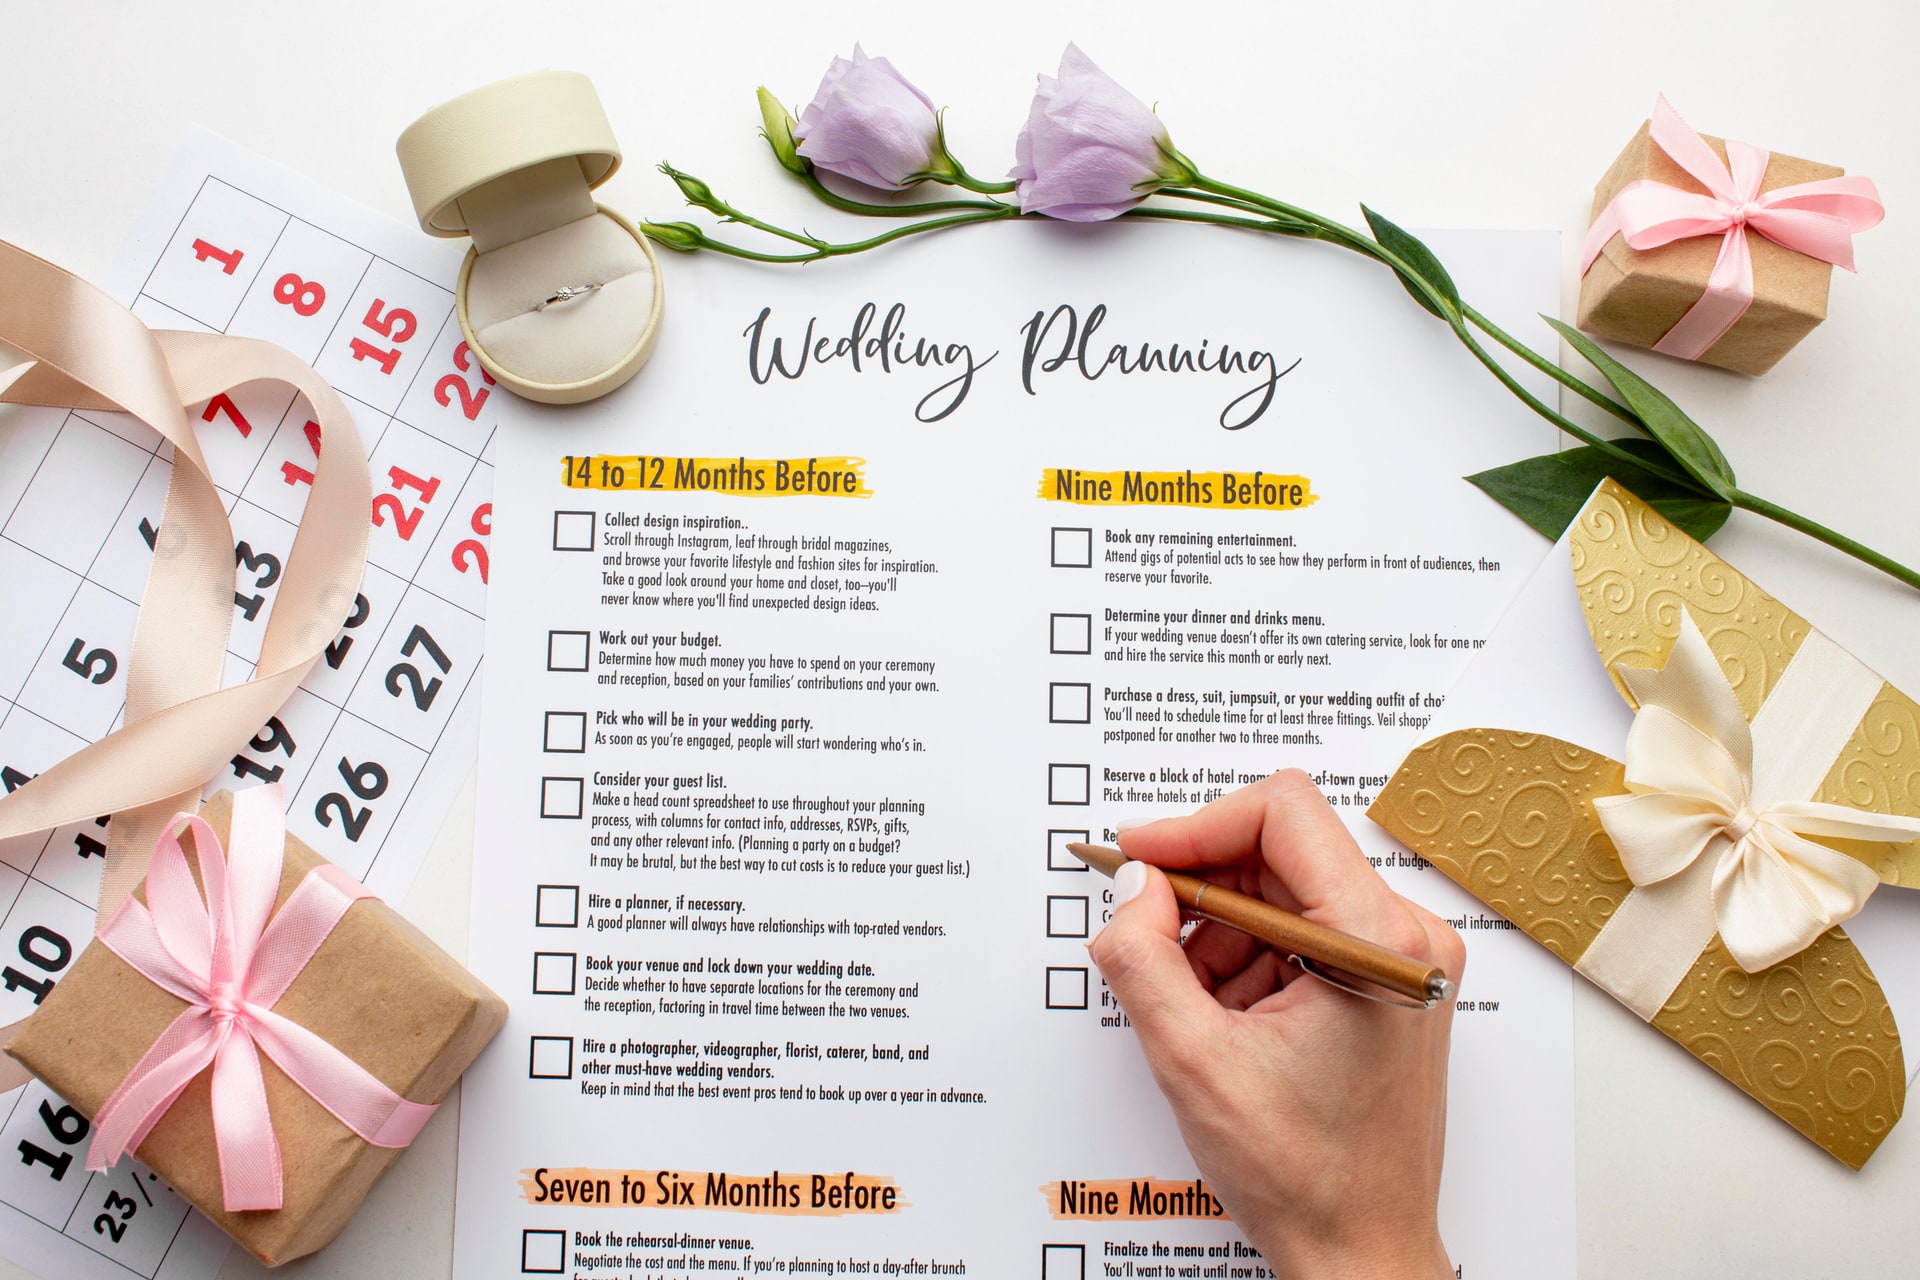 1
8
15
22
7
14
21
28
6
13
20
27
5
19
26
10
16
23/
Wedding Planning
14 to 12 Months Before
Collect design inspiration..
Scroll through Instagram, leaf through bridal magazines,
and browse your favorite lifestyle and fashion sites for inspiration.
Take a good look around your home and closet, too—you'll
never know where you'll find unexpected design ideas.
Work out your budget.
Determine how much money you have to spend on your ceremony
and reception, based on your families' contributions and your own.
Pick who will be in your wedding party.
As soon as you're engaged, people will start wondering who's in.
Consider your guest list.
Make a head count spreadsheet to use throughout your planning
process, with columns for contact info, addresses, RSVPs, gifts,
and any other relevant info. (Planning a party on a budget?
It may be brutal, but the best way to cut costs is to reduce your guest list.)
Hire a planner, if necessary.
A good planner will always have relationships with top-rated vendors.
Book your venue and lock down your wedding date.
Decide whether to have separate locations for the ceremony and
the reception, factoring in travel time between the two venues.
Hire a photographer, videographer, florist, caterer, band, and
other must-have wedding vendors.
Keep in mind that the best event pros tend to book up over a year in advance.
Seven to Six Months Before
Book the rehearsal-dinner venue.
Negotiate the cost and the menu. If you're planning to host a day-after brunch
Nine Months Before
Book any remaining entertainment.
Attend gigs of potential acts to see how they perform in front of audiences, then
reserve your favorite.
Determine your dinner and drinks menu.
If your wedding venue doesn't offer its own catering service, look for one
and hire the service this month or early next.
Purchase a dress, suit, jumpsuit, or your wedding outfit of
You'll need to schedule time for at least three fittings. Veil
postponed for another two to three months.
Reserve a block of hotel of-town
Pick three hotels at to the
of
one now
and
Nine Months
Finalize the menu and
You'll want to wait until now to